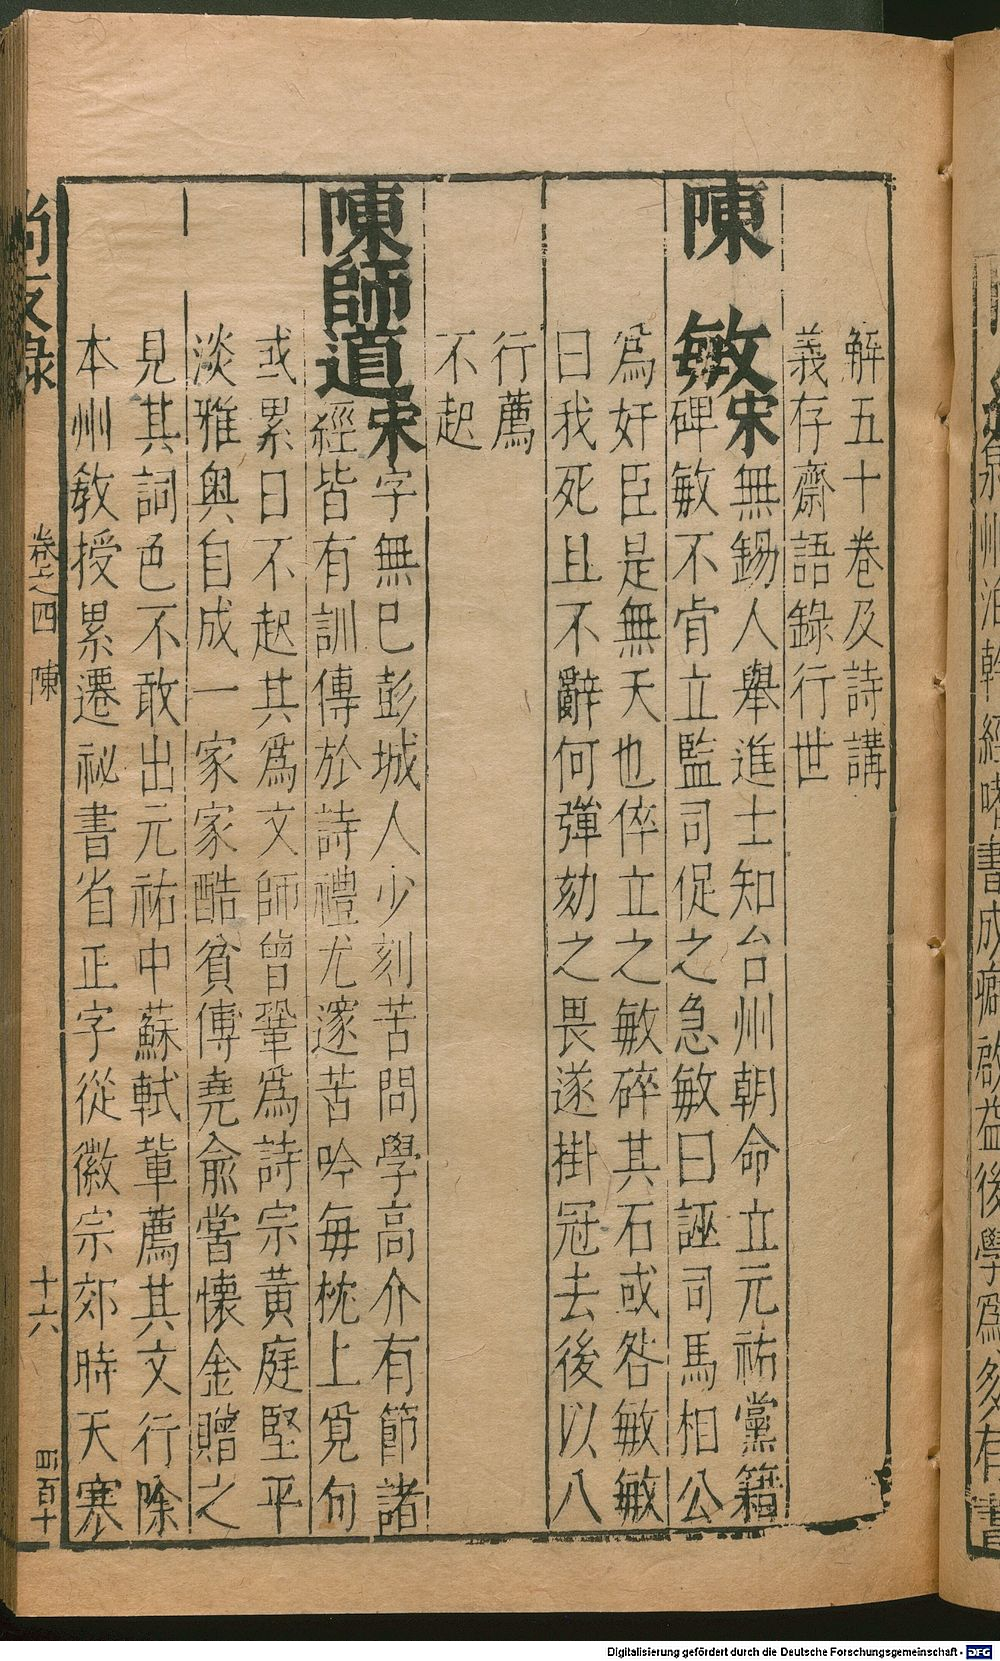 解五十卷及詩講
義存齋語錄行世
陳　敏宋無錫人舉進士知台州朝命立元祐黨籍
碑敏不肯立監司促之急敏曰誣司馬相公
爲奸臣是無天也倅立之敏碎其石或咎敏敏
曰我死且不辭何彈劾之畏遂掛冠去後以八
行薦
不起
陳師道宋字無已彭城人少刻苦問學高介有節諸
經皆有訓傳於詩禮尤邃苦吟每枕上覓句
或累日不起其爲文師曾鞏爲詩宗黃庭堅平
淡雅奥自成一家家酷貧傅堯俞嘗懷金贈之
見其詞色不敢出元祐中蘇軾軰薦其文行除
本州敎授累遷祕書省正字從徽宗郊時天寒
尚友錄
卷之四
陳
十六
四百十
泉州治幹經
書成癖啟益後學爲多有書
Digitalisierung gefördert durch die Deutsche Forschungsgemeinschaft - DFG